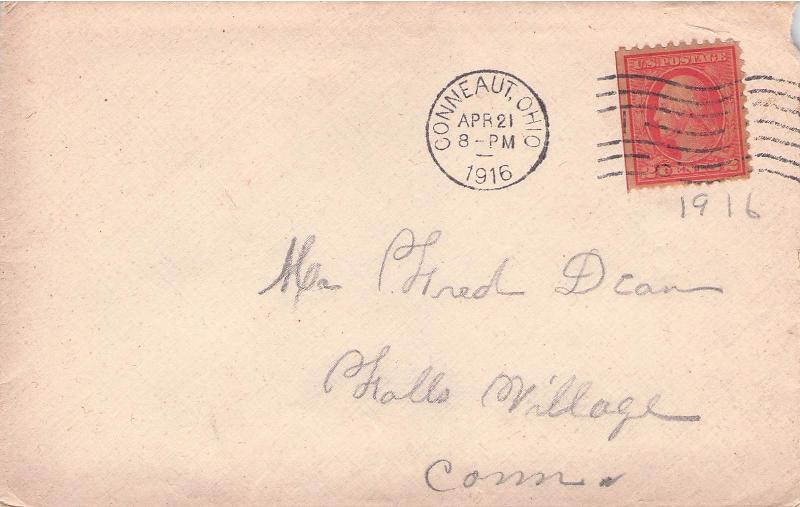 CONNEAUT, OHIO
APR 21
8-PM
1916
U.S. POSTAGE
2 CENTS 2
1916
Mr Fred Dean
Falls Village
Conn.